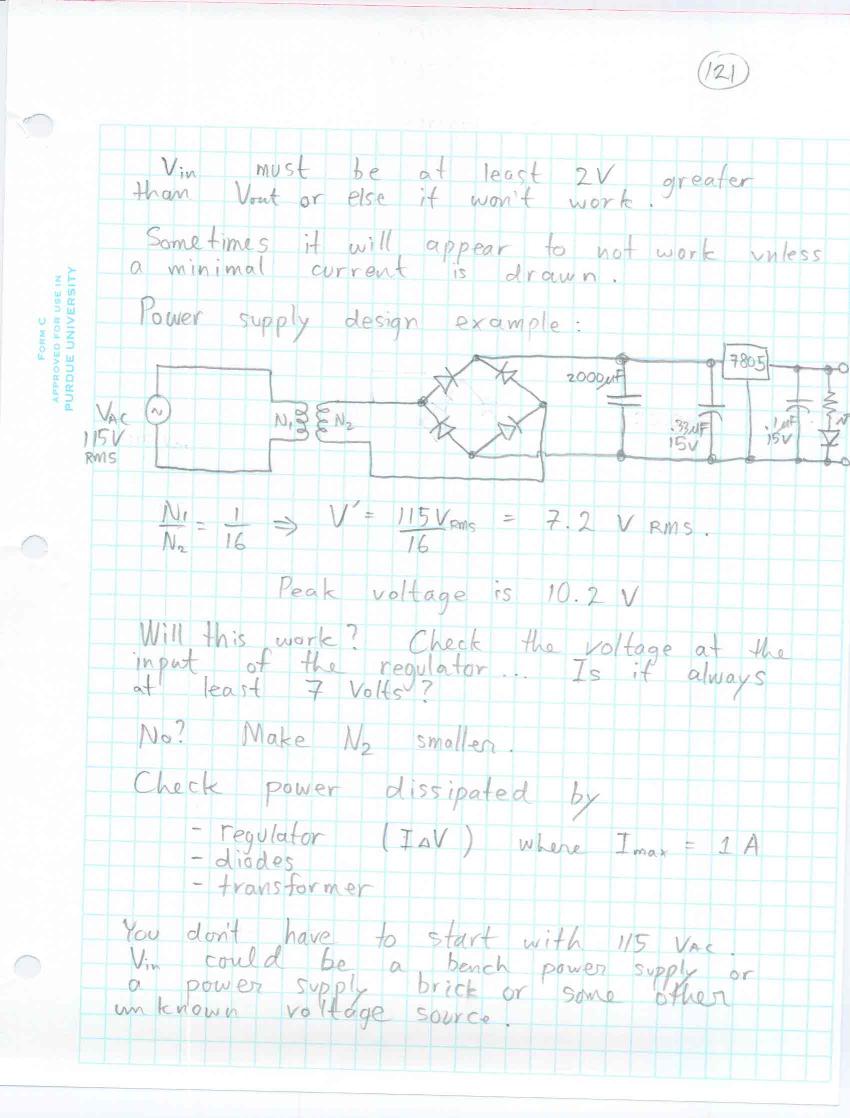 121
Vin must be at least 2V greater
than Vout or else it won't work.
Sometimes it will appear to not work unless
a minimal current is drawn.
FORM C
APPROVED FOR USE IN
PURDUE UNIVERSITY
Power supply design example:
7805
2000µF
VAC
115V
RMS
~
N1
N2
.33µF
15V
.1µF
15V
N1/N2 = 1/16 ⇒ V' = 115VRMS/16 = 7.2 V RMS.
Peak voltage is 10.2 V
Will this work? Check the voltage at the
input of the regulator... Is it always
at least 7 Volts?
No? Make N2 smaller.
Check power dissipated by
- regulator (I∆V) where Imax = 1 A
- diodes
- transformer
You don't have to start with 115 VAC.
Vin could be a bench power supply or
a power supply brick or some other
unknown voltage source.